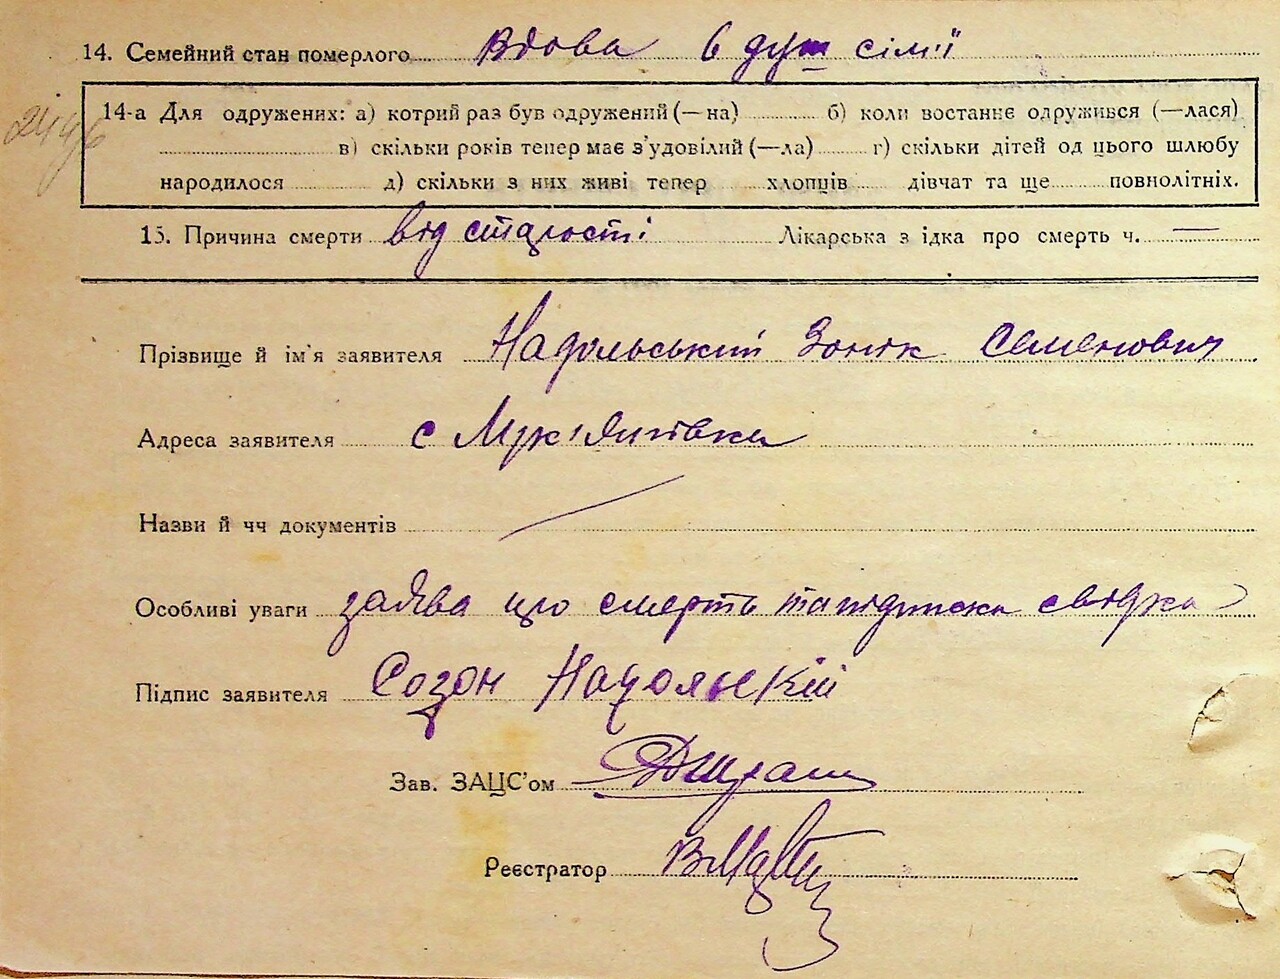 14. Семейний стан померлого Вдова 6 душ сім'ї
14-а Для одружених: а) котрий раз був одружений (—на) б) коли востаннє одружився (—лася)
в) скільки років тепер має з'удовілий (—ла) г) скільки дітей од цього шлюбу
народилося д) скільки з них живі тепер хлопців дівчат та ще повнолітніх.
15. Причина смерти від старості Лікарська з ідка про смерть ч. —
Прізвище й ім'я заявителя Надольський Семенович
Адреса заявителя с Лук'янівка
Назви й чч документів
Особливі уваги заява про смерть та підписка свідка
Підпис заявителя Созон Надольскій
Зав. ЗАЦС'ом
Реєстратор